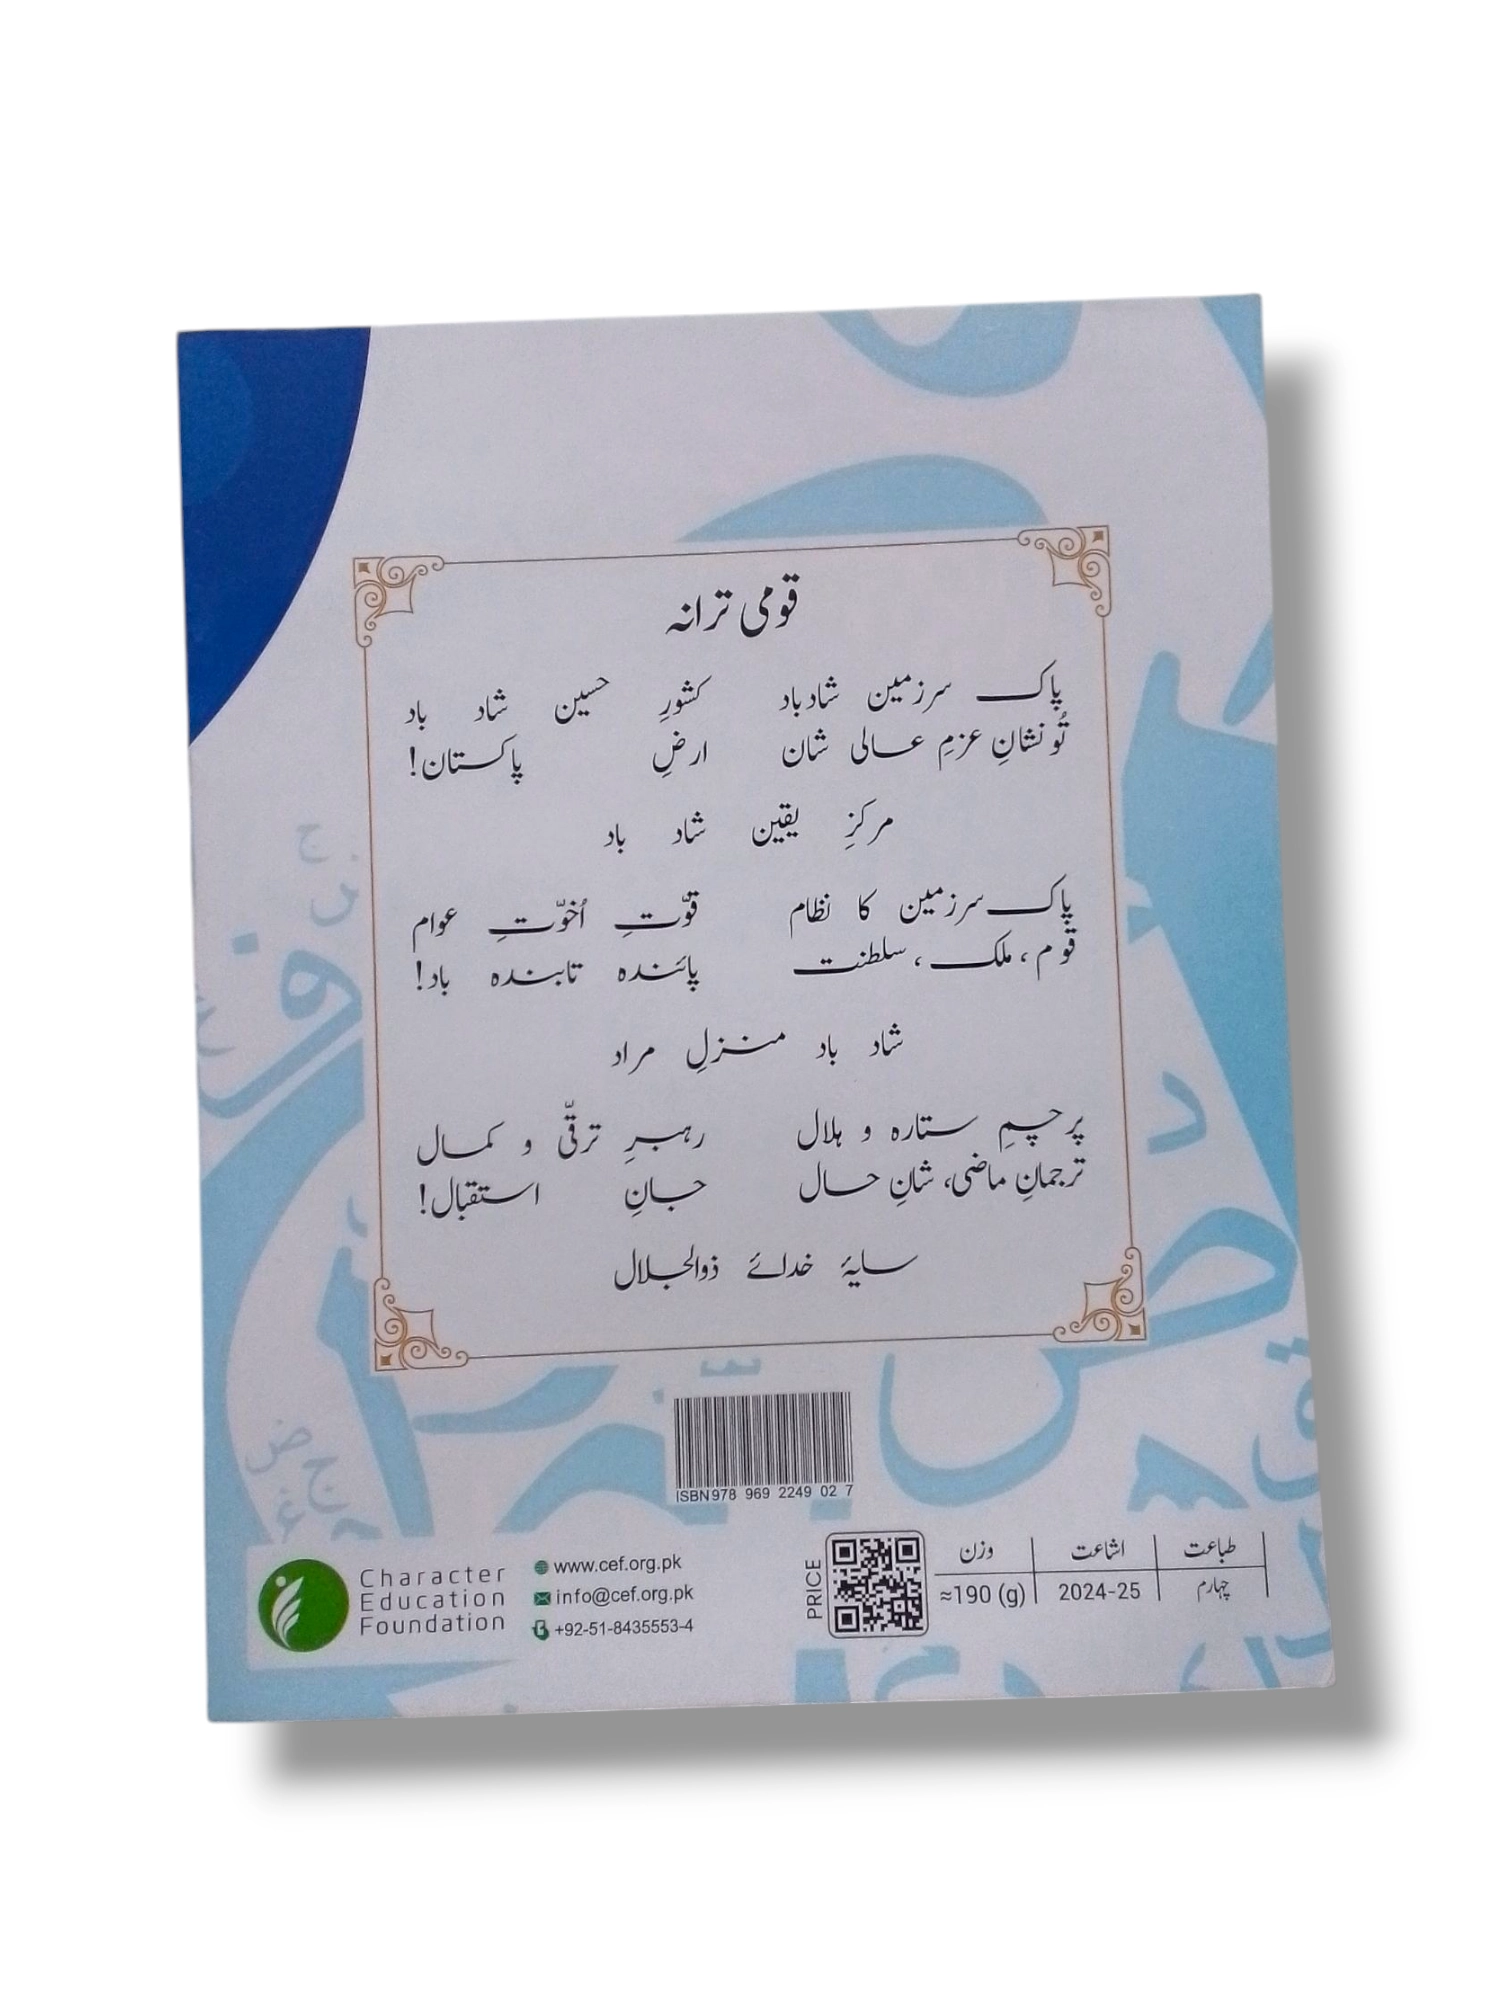 قومی ترانہ
پاک سرزمین شادباد کشورِ حسین شاد باد
تُو نشانِ عزمِ عالی شان ارضِ پاکستان!
مرکزِ یقین شاد باد
پاک سرزمین کا نظام قوّتِ اُخوّتِ عوام
قوم، ملک، سلطنت پائندہ تابندہ باد!
شاد باد منزلِ مراد
پرچمِ ستارہ و ہلال رہبرِ ترقّی و کمال
ترجمانِ ماضی، شانِ حال جانِ استقبال!
سایۂ خدائے ذوالجلال
ISBN978 969 2249 02 7
Character
Education
Foundation
www.cef.org.pk
info@cef.org.pk
+92-51-8435553-4
PRICE
طباعت اشاعت وزن
چہارم 2024-25 ≈190 (g)